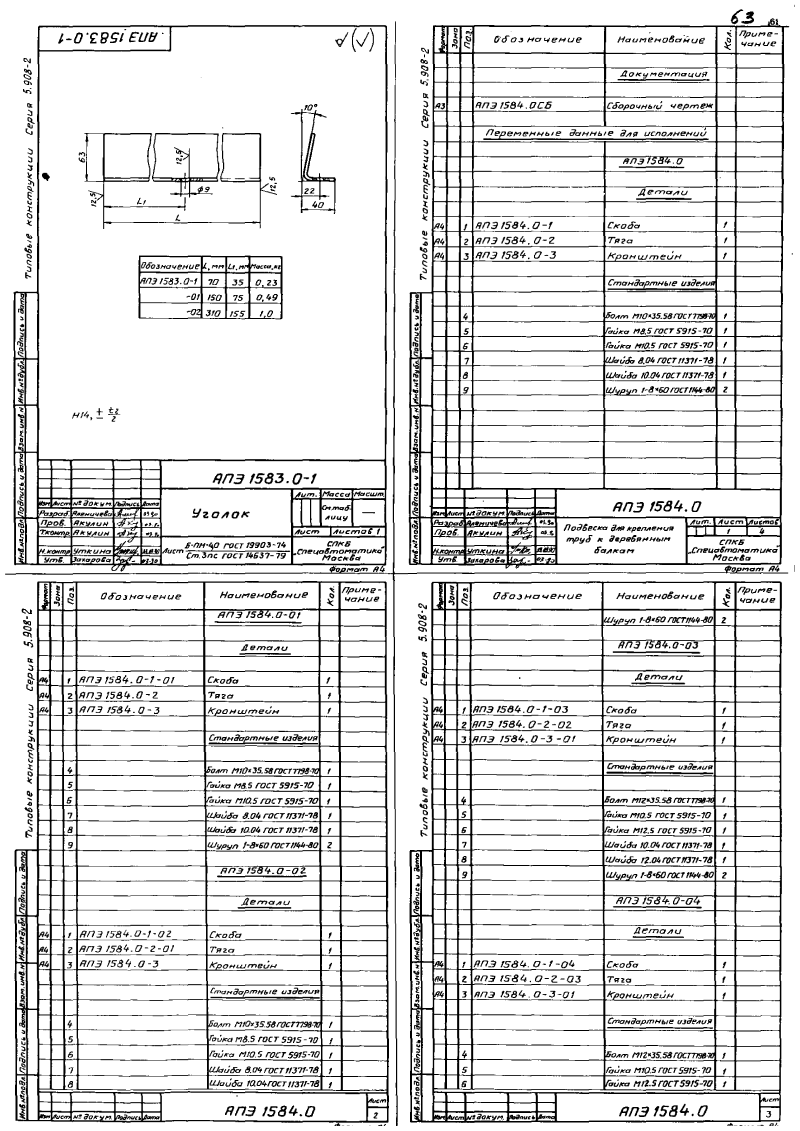 63
61
АПЭ 1583.0-1
Типовые конструкции Серия 5.908-2
10°
63
12,5
12,5
12,5
ф9
22
40
L1
L
Обозначение L, мм L1, мм Масса, кг
АПЭ 1583.0-1 70 35 0,23
-01 150 75 0,49
-02 310 155 1,0
H14, ± t2/2
АПЭ 1583.0-1
Уголок
Лит. Масса Масшт.
См.таблицу —
Лист Листов 1
Изм Лист № докум. Подпись Дата
Разраб. Аленичева
Пров. Якулин
Т.контр. Якулин
Н.контр. Уткина
Утв. Захарова
Лист Б-ПН-40 ГОСТ 19903-74
Ст.3пс ГОСТ 14637-79
СПКБ
"Спецавтоматика"
Москва
Формат А4
Инв.№ подл. Подпись и дата Взам.инв.№ Инв.№ дубл. Подпись и дата
Типовые конструкции Серия 5.908-2
Формат Зона Поз. Обозначение Наименование Кол. Примечание
Документация
А3 АПЭ 1584.0СБ Сборочный чертеж
Переменные данные для исполнений
АПЭ 1584.0
Детали
А4 1 АПЭ 1584.0-1 Скоба 1
А4 2 АПЭ 1584.0-2 Тяга 1
А4 3 АПЭ 1584.0-3 Кронштейн 1
Стандартные изделия
4 Болт М10×35.58 ГОСТ 7798-70 1
5 Гайка М8.5 ГОСТ 5915-70 1
6 Гайка М10.5 ГОСТ 5915-70 1
7 Шайба 8.04 ГОСТ 11371-78 1
8 Шайба 10.04 ГОСТ 11371-78 1
9 Шуруп 1-8×60 ГОСТ 1144-80 2
АПЭ 1584.0
Изм Лист № докум. Подпись Дата
Разраб. Аленичева
Пров. Якулин
Н.контр. Уткина
Утв. Захарова
Подвеска для крепления
труб к деревянным
балкам
Лит. Лист Листов
1 4
СПКБ
"Спецавтоматика"
Москва
Формат А4
Инв.№ подл. Подпись и дата Взам.инв.№ Инв.№ дубл. Подпись и дата
Типовые конструкции Серия 5.908-2
Формат Зона Поз. Обозначение Наименование Кол. Примечание
АПЭ 1584.0-01
Детали
А4 1 АПЭ 1584.0-1-01 Скоба 1
А4 2 АПЭ 1584.0-2 Тяга 1
А4 3 АПЭ 1584.0-3 Кронштейн 1
Стандартные изделия
4 Болт М10×35.58 ГОСТ 7798-70 1
5 Гайка М8.5 ГОСТ 5915-70 1
6 Гайка М10.5 ГОСТ 5915-70 1
7 Шайба 8.04 ГОСТ 11371-78 1
8 Шайба 10.04 ГОСТ 11371-78 1
9 Шуруп 1-8×60 ГОСТ 1144-80 2
АПЭ 1584.0-02
Детали
А4 1 АПЭ 1584.0-1-02 Скоба 1
А4 2 АПЭ 1584.0-2-01 Тяга 1
А4 3 АПЭ 1584.0-3 Кронштейн 1
Стандартные изделия
4 Болт М10×35.58 ГОСТ 7798-70 1
5 Гайка М8.5 ГОСТ 5915-70 1
6 Гайка М10.5 ГОСТ 5915-70 1
7 Шайба 8.04 ГОСТ 11371-78 1
8 Шайба 10.04 ГОСТ 11371-78 1
Изм Лист № докум. Подпись Дата
АПЭ 1584.0
Лист
2
Инв.№ подл. Подпись и дата Взам.инв.№ Инв.№ дубл. Подпись и дата
Типовые конструкции Серия 5.908-2
Формат Зона Поз. Обозначение Наименование Кол. Примечание
Шуруп 1-8×60 ГОСТ 1144-80 2
АПЭ 1584.0-03
Детали
А4 1 АПЭ 1584.0-1-03 Скоба 1
А4 2 АПЭ 1584.0-2-02 Тяга 1
А4 3 АПЭ 1584.0-3-01 Кронштейн 1
Стандартные изделия
4 Болт М12×35.58 ГОСТ 7798-70 1
5 Гайка М10.5 ГОСТ 5915-70 1
6 Гайка М12.5 ГОСТ 5915-70 1
7 Шайба 10.04 ГОСТ 11371-78 1
8 Шайба 12.04 ГОСТ 11371-78 1
9 Шуруп 1-8×60 ГОСТ 1144-80 2
АПЭ 1584.0-04
Детали
А4 1 АПЭ 1584.0-1-04 Скоба 1
А4 2 АПЭ 1584.0-2-03 Тяга 1
А4 3 АПЭ 1584.0-3-01 Кронштейн 1
Стандартные изделия
4 Болт М12×35.58 ГОСТ 7798-70 1
5 Гайка М10.5 ГОСТ 5915-70 1
6 Гайка М12.5 ГОСТ 5915-70 1
Изм Лист № докум. Подпись Дата
АПЭ 1584.0
Лист
3
Инв.№ подл. Подпись и дата Взам.инв.№ Инв.№ дубл. Подпись и дата